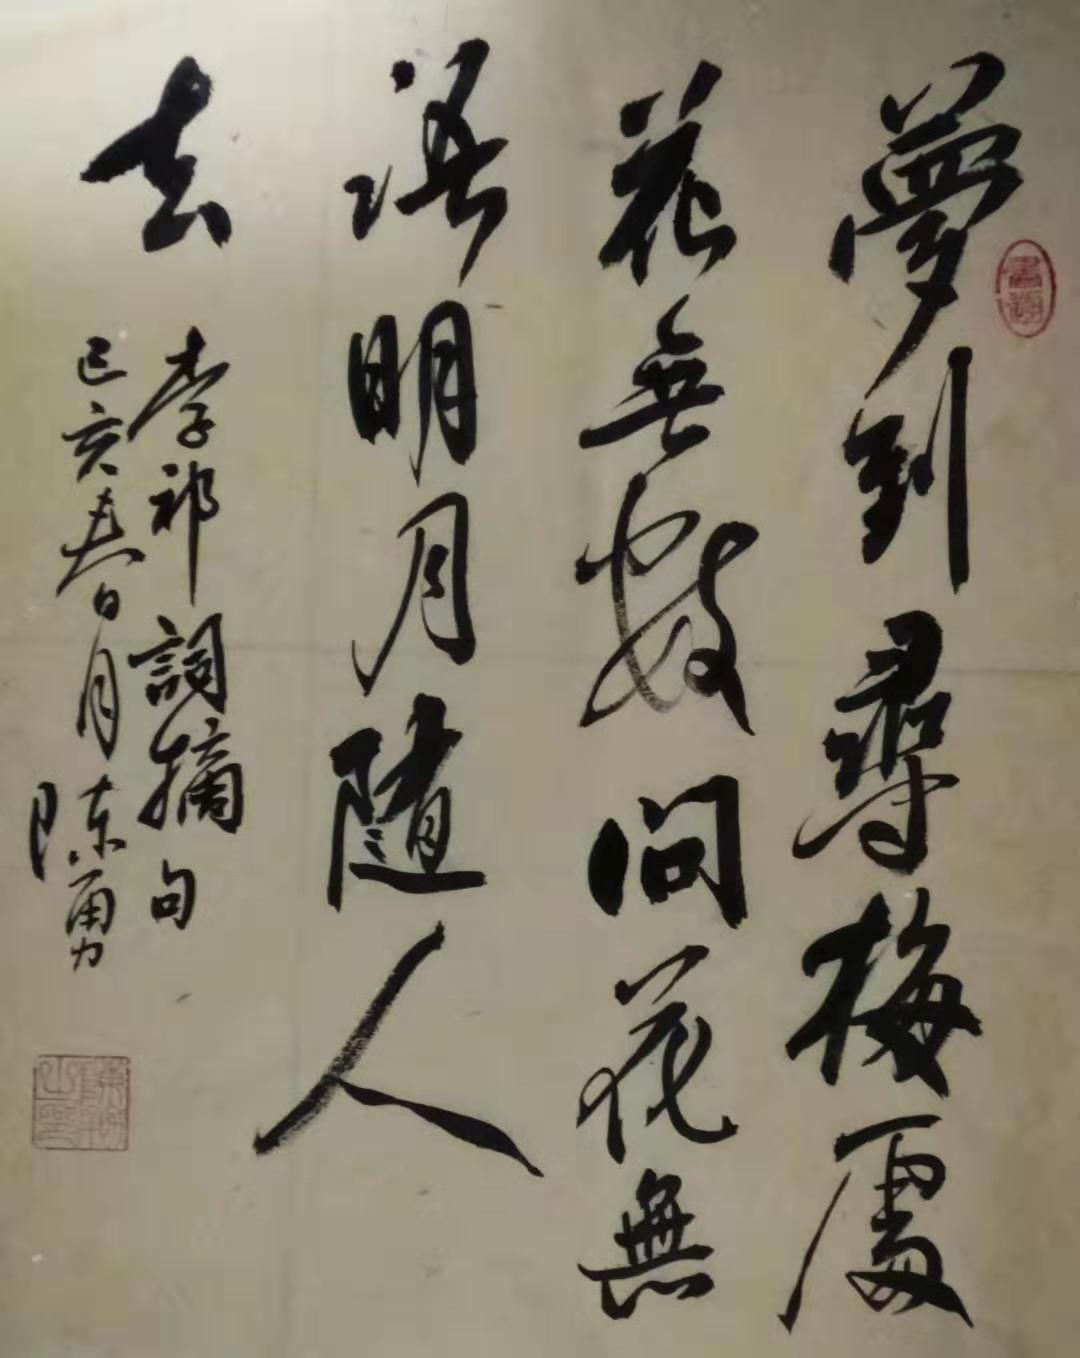 夢到尋梅處
花無數問花無
語明月隨人
去
李祁詞摘句
己亥春日月陈勇